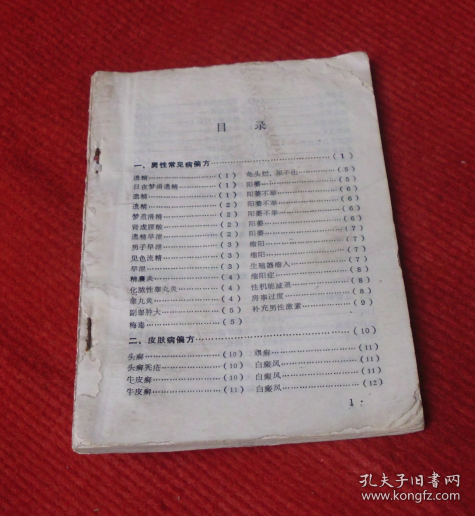 目 录
一、男性常见病偏方……………………(1)
遗精……………(1) 龟头烂，尿不出……(5)
日夜梦遗遗精……(1) 阳萎……………(5)
遗精……………(1) 阳萎不举…………(6)
遗精……………(2) 阳萎不举…………(6)
梦遗滑精…………(2) 阳萎不举…………(6)
肾虚腰酸…………(2) 阳萎……………(7)
遗精早泄…………(2) 阳萎……………(7)
男子早泄…………(3) 缩阳……………(7)
见色流精…………(3) 缩阳……………(7)
早泄……………(3) 生殖器缩入………(8)
睾丸炎……………(4) 缩阳症……………(8)
化脓性睾丸炎……(4) 性机能减退………(8)
睾丸炎……………(4) 房事过度…………(8)
副睾肿大…………(5) 补充男性激素……(9)
梅毒……………(5)
二、皮肤病偏方……………………(10)
头癣……………(10) 顽癣……………(11)
头癣秃疮…………(10) 白癜风……………(11)
牛皮癣……………(10) 白癜风……………(11)
牛皮癣……………(11) 白癜风……………(12)
1·
孔夫子旧书网
www.kongfz.com